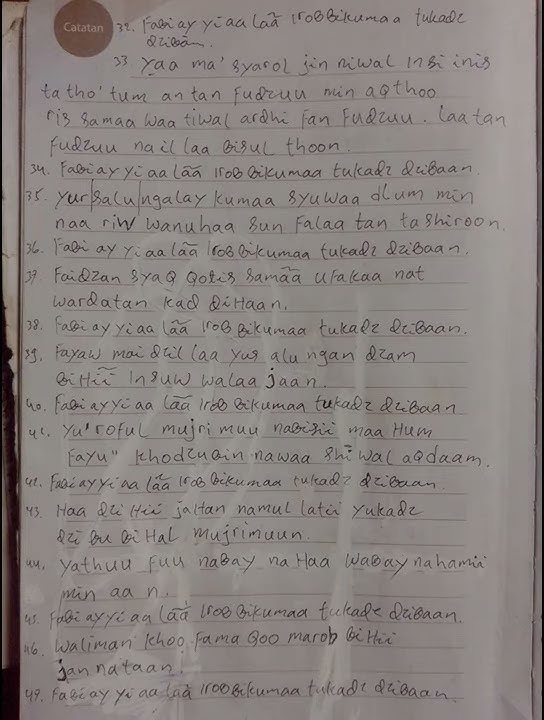 Catatan
32. Fabiay yiaa laã irobbikumaa tukadz
dzibãn.
33 Yaa ma' syarol jin niwal insi inis
tatho'tum an tan fudzuu min aqthoo
ris samaa waa tiwal ardhi fan fudzuu. Laa tan
fudzuu na il laa bisul thoon.
34. Fabiay yiaa laã irobbikumaa tukadz dzibaan.
35. Yursalu ngalay kumaa syuwaa dlum min
naa riw wanuhaa sun falaa tan tashiroon.
36. Fabiay yiaa laã irobbikumaa tukadz dzibaan.
37. Faidzan syaq qotis samãã ufakaa nat
wardatan kad diHaan.
38. Fabiay yiaa laã irobbikumaa tukadz dzibaan.
39. Fayaw mai dzil laa yus alu ngan dzam
biHii insuw walaa jaan.
40. Fabiay yiaa laã irobbikumaa tukadz dzibaan
41. Yu'roful mujrimuu nabisii maa Hum
Fayu" khodzubin nawaa shi wal aqdaam.
42. Fabiay yiaa laã irobbikumaa tukadz dzibaan.
43. Haa dzi Hii jaHan namul latii yukadz
dzi bu biHal mujrimuun.
44. Yathuu fuu nabay naHaa wabay nahamii
min aa n.
45. Fabiay yiaa laã irobbikumaa tukadz dzibaan.
46. Waliman khoo fama qoo marob biHii
jannataan.
47. Fabiay yiaa laã irobbikumaa tukadz dzibaan.